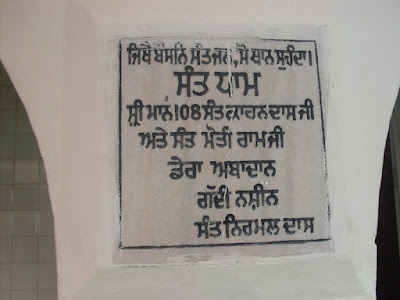 ਜਿਥੈ ਬੈਸਨਿ ਸੰਤਜਨ, ਸੋ ਥਾਨ ਸੁਹੰਦਾ।
ਸੰਤ ਧਾਮ
ਸ੍ਰੀ ਮਾਨ।08 ਸੰਤ ਕਾਹਨ ਦਾਸ ਜੀ
ਅਤੇ ਸੰਤ ਮੋਤੀ ਰਾਮ ਜੀ
ਡੇਰਾ ਅਬਾਦਾਨ
ਗੱਦੀ ਨਸ਼ੀਨ
ਸੰਤ ਨਿਰਮਲ ਦਾਸ